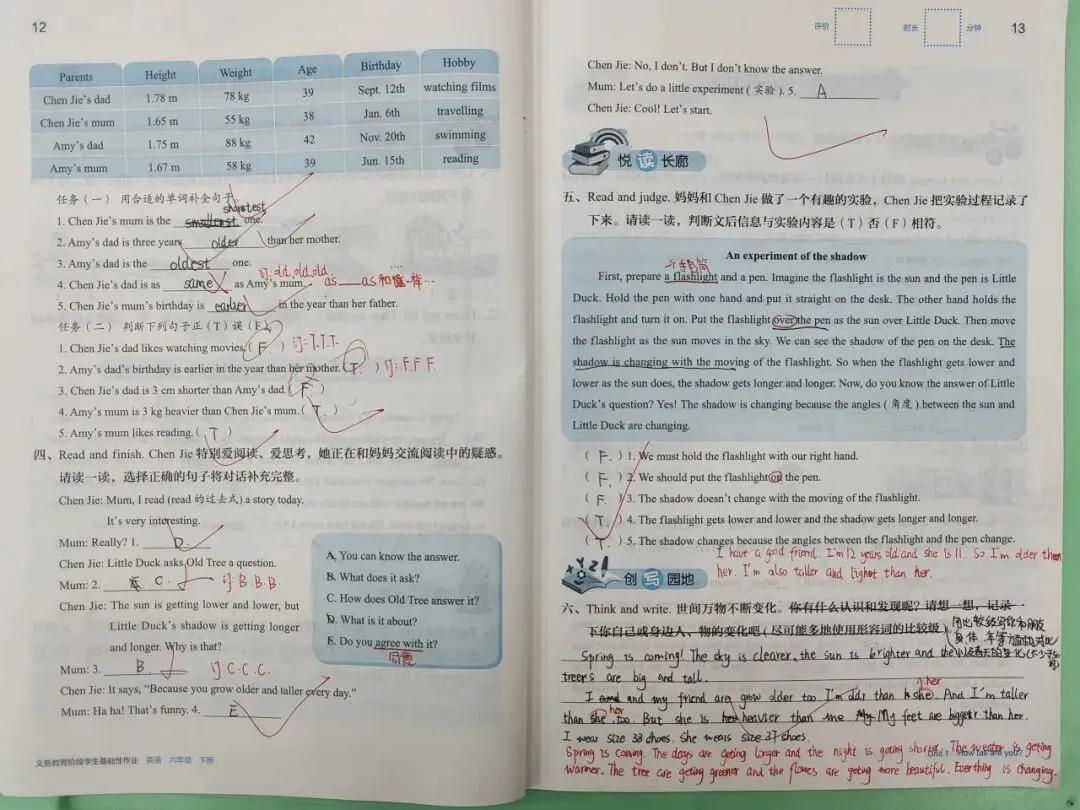 12
Parents Height Weight Age Birthday Hobby
Chen Jie's dad 1.78 m 78 kg 39 Sept. 12th watching films
Chen Jie's mum 1.65 m 55 kg 38 Jan. 6th travelling
Amy's dad 1.75 m 88 kg 42 Nov. 20th swimming
Amy's mum 1.67 m 58 kg 39 Jun. 15th reading
任务（一） 用合适的单词补全句子
shortest
1. Chen Jie's mum is the smallerst one.
2. Amy's dad is three years older than her mother.
3. Amy's dad is the oldest one. 订: old, old, old
4. Chen Jie's dad is as same as Amy's mum. as ___ as 和
5. Chen Jie's mum's birthday is earlier in the year than her father.
任务（二） 判断下列句子正（T）误（F）
1. Chen Jie's dad likes watching movies. ( F ) 订: T. T. T.
2. Amy's dad's birthday is earlier in the year than her mother. ( T. ) 订: F. F. F.
3. Chen Jie's dad is 3 cm shorter than Amy's dad. ( F )
4. Amy's mum is 3 kg heavier than Chen Jie's mum. ( T. )
5. Amy's mum likes reading. ( T )
四、Read and finish. Chen Jie 特别爱阅读、爱思考，她正在和妈妈交流阅读中的疑惑。
请读一读，选择正确的句子将对话补充完整。
Chen Jie: Mum, I read (read 的过去式) a story today.
It's very interesting.
Mum: Really? 1. D.
Chen Jie: Little Duck asks Old Tree a question.
Mum: 2. C. 订: B. B. B.
Chen Jie: The sun is getting lower and lower, but
Little Duck's shadow is getting longer
and longer. Why is that?
Mum: 3. B 订: C. C. C.
Chen Jie: It says, "Because you grow older and taller every day."
Mum: Ha ha! That's funny. 4. E
A. You can know the answer.
B. What does it ask?
C. How does Old Tree answer it?
D. What is it about?
E. Do you agree with it?
同意
义务教育阶段学生基础性作业 英语 六年级 下册
评价 时长 分钟 13
Chen Jie: No, I don't. But I don't know the answer.
Mum: Let's do a little experiment ( 实验 ). 5. A
Chen Jie: Cool! Let's start.
悦读长廊
五、Read and judge. 妈妈和 Chen Jie 做了一个有趣的实验，Chen Jie 把实验过程记录了
下来。请读一读，判断文后信息与实验内容是（T）否（F）相符。
An experiment of the shadow
手电筒
First, prepare a flashlight and a pen. Imagine the flashlight is the sun and the pen is Little
Duck. Hold the pen with one hand and put it straight on the desk. The other hand holds the
flashlight and turn it on. Put the flashlight over the pen as the sun over Little Duck. Then move
the flashlight as the sun moves in the sky. We can see the shadow of the pen on the desk. The
shadow is changing with the moving of the flashlight. So when the flashlight gets lower and
lower as the sun does, the shadow gets longer and longer. Now, do you know the answer of Little
Duck's question? Yes! The shadow is changing because the angles ( 角度 ) between the sun and
Little Duck are changing.
( F. ) 1. We must hold the flashlight with our right hand.
( F. ) 2. We should put the flashlight on the pen.
( F. ) 3. The shadow doesn't change with the moving of the flashlight.
( T. ) 4. The flashlight gets lower and lower and the shadow gets longer and longer.
( T. ) 5. The shadow changes because the angles between the flashlight and the pen change.
I have a good friend. I'm 12 years old and she is 11. So I'm older then
her. I'm also taller and light than her.
创写园地
六、Think and write. 世间万物不断变化。你有什么认识和发现呢？请想一想，记录一
下你自己或身边人、物的变化吧（尽可能多地使用形容词的比较级）
Spring is coming! The dky is clearer, the sun is brighter and the
treers are big and tall.
I and my friend are grow older too I'm oldr than she. And I'm taller
订: her
than she, too. But she is heavier than me My feet are bigger than her.
her
I wear size 38 shoes. She wears size 37 shoes.
Unit 1 How tall are you?
Spring is coming. The days are geting longer and the night is geting shorter. The weater is geting
warmer. The tree are geting greener and the flowes are geting more beautiful. Everthing is changing.